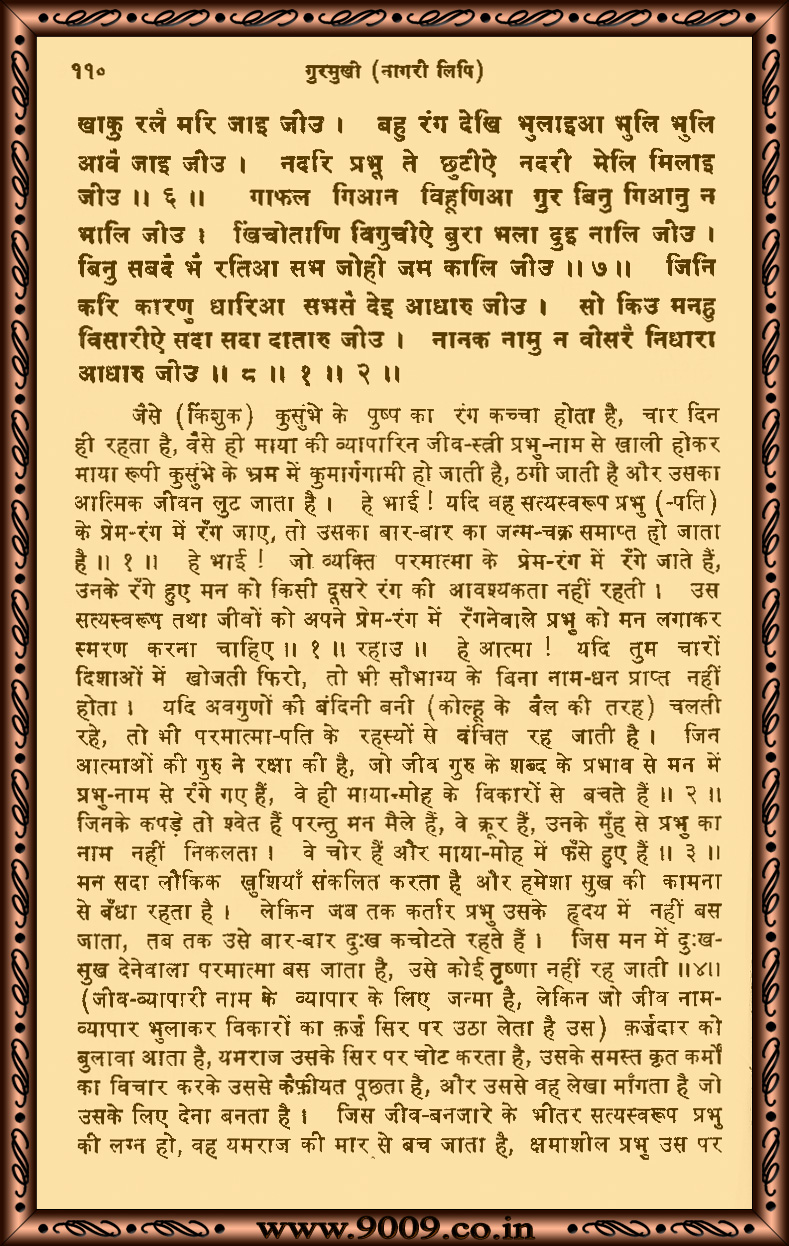 ११० गुरमुखी (नागरी लिपि)
खाकु रलै मरि जाइ जीउ । बहु रंग देखि भुलाइआ भुलि भुलि
आवै जाइ जीउ । नदरि प्रभू ते छुटीऐ नदरी मेलि मिलाइ
जीउ ॥ ६ ॥ गाफल गिआन विहूणिआ गुर बिनु गिआनु न
भालि जीउ । खिंचोताणि विगुचीऐ बुरा भला दुइ नालि जीउ ।
बिनु सबदै भै रतिआ सभ जोही जम कालि जीउ ॥ ७ ॥ जिनि
करि कारणु धारिआ सभसै देइ आधारु जीउ । सो किउ मनहु
विसारीऐ सदा सदा दातारु जीउ । नानक नामु न वीसरै निधारा
आधारु जीउ ॥ ८ ॥ १ ॥ २ ॥
जैसे (किंशुक) कुसुंभे के पुष्प का रंग कच्चा होता है, चार दिन
ही रहता है, वैसे ही माया की व्यापारिन जीव-स्त्री प्रभु-नाम से खाली होकर
माया रूपी कुसुंभे के भ्रम में कुमार्गगामी हो जाती है, ठगी जाती है और उसका
आत्मिक जीवन लुट जाता है । हे भाई ! यदि वह सत्यस्वरूप प्रभु (-पति)
के प्रेम-रंग में रँग जाए, तो उसका बार-बार का जन्म-चक्र समाप्त हो जाता
है ॥ १ ॥ हे भाई ! जो व्यक्ति परमात्मा के प्रेम-रंग में रँगे जाते हैं,
उनके रँगे हुए मन को किसी दूसरे रंग की आवश्यकता नहीं रहती । उस
सत्यस्वरूप तथा जीवों को अपने प्रेम-रंग में रँगनेवाले प्रभु को मन लगाकर
स्मरण करना चाहिए ॥ १ ॥ रहाउ ॥ हे आत्मा ! यदि तुम चारों
दिशाओं में खोजती फिरो, तो भी सौभाग्य के बिना नाम-धन प्राप्त नहीं
होता । यदि अवगुणों की बंदिनी बनी (कोल्हू के बैल की तरह) चलती
रहे, तो भी परमात्मा-पति के रहस्यों से वंचित रह जाती है । जिन
आत्माओं की गुरु ने रक्षा की है, जो जीव गुरु के शब्द के प्रभाव से मन में
प्रभु-नाम से रंगे गए हैं, वे ही माया-मोह के विकारों से बचते हैं ॥ २ ॥
जिनके कपड़े तो श्वेत हैं परन्तु मन मैले हैं, वे क्रूर हैं, उनके मुँह से प्रभु का
नाम नहीं निकलता । वे चोर हैं और माया-मोह में फँसे हुए हैं ॥ ३ ॥
मन सदा लौकिक खुशियाँ संकलित करता है और हमेशा सुख की कामना
से बँधा रहता है । लेकिन जब तक कर्तार प्रभु उसके हृदय में नहीं बस
जाता, तब तक उसे बार-बार दुःख कचोटते रहते हैं । जिस मन में दुःख-
सुख देनेवाला परमात्मा बस जाता है, उसे कोई तृष्णा नहीं रह जाती ॥४॥
(जीव-व्यापारी नाम के व्यापार के लिए जन्मा है, लेकिन जो जीव नाम-
व्यापार भुलाकर विकारों का क़र्ज़ सिर पर उठा लेता है उस) क़र्ज़दार को
बुलावा आता है, यमराज उसके सिर पर चोट करता है, उसके समस्त कृत कर्मों
का विचार करके उससे कैफ़ीयत पूछता है, और उससे वह लेखा माँगता है जो
उसके लिए देना बनता है । जिस जीव-बनजारे के भीतर सत्यस्वरूप प्रभु
की लग्न हो, वह यमराज की मार से बच जाता है, क्षमाशील प्रभु उस पर
www.9009.co.in